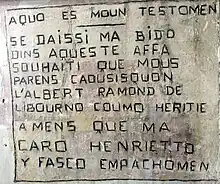 AQUO ES MOUN TESTOMEN
SE DAISSI MA BIDO
DINS AQUESTE AFFA
SOUHAITI QUE MOUS
PARENS CAOUSISQUON
L'ALBERT RAMOND DE
LIBOURNO COUMO HERITIE
AMENS QUE MA
CARO HENRIETTO
Y FASCO EMPACHOMEN